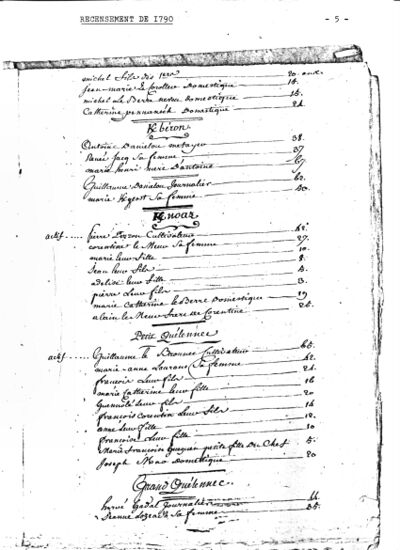 RECENSEMENT DE 1790 - 5 -
michel fils des 1ers 20 ans
Jean-marie Le Corolleur Domestique 15.
michel Le Berre neveu domestique 15.
Catherine Domestique 21.
K/béron
Antoine Danielou métayer 38.
Renée Jacq Sa femme 37
marie henri mere D'antoine 67
Guillaume Danielou Journalier 62.
marie Sa femme 60.
K/noaz
actif Pierre Cultivateur 42.
Corentine le Neur Sa femme 27.
marie leur fille 10
Jean leur fils 8.
leur fille 5.
pierre leur fils 3.
marie Catherine le Berre Domestique 19
alain le Neur frere de Corentine 26.
Petit Quélennec
actif Guillaume le Cultivateur 66.
marie-anne Sa femme 62.
françois leur fils 21.
marie Catherine leur fille 16
Guennolé leur fils 20
françois Corentin leur fils 14
anne leur fille 12.
françoise leur fille 10
Marie françoise petite fille Du Chef 5.
Joseph Domestique 20
Grand Quélennec
hervé Journalier
Jeanne Sa femme